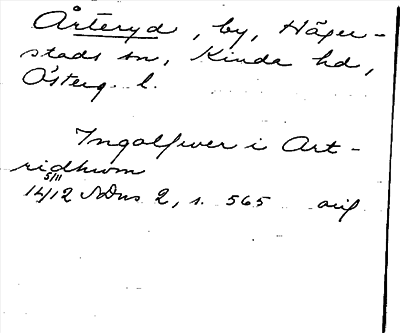 Årteryd, by, Häger-
stads sn, Kinda hd,
Österg. l.
Ingolfwer i Art-
ridhwm
5/11
1412 SDns 2, s. 565 orig